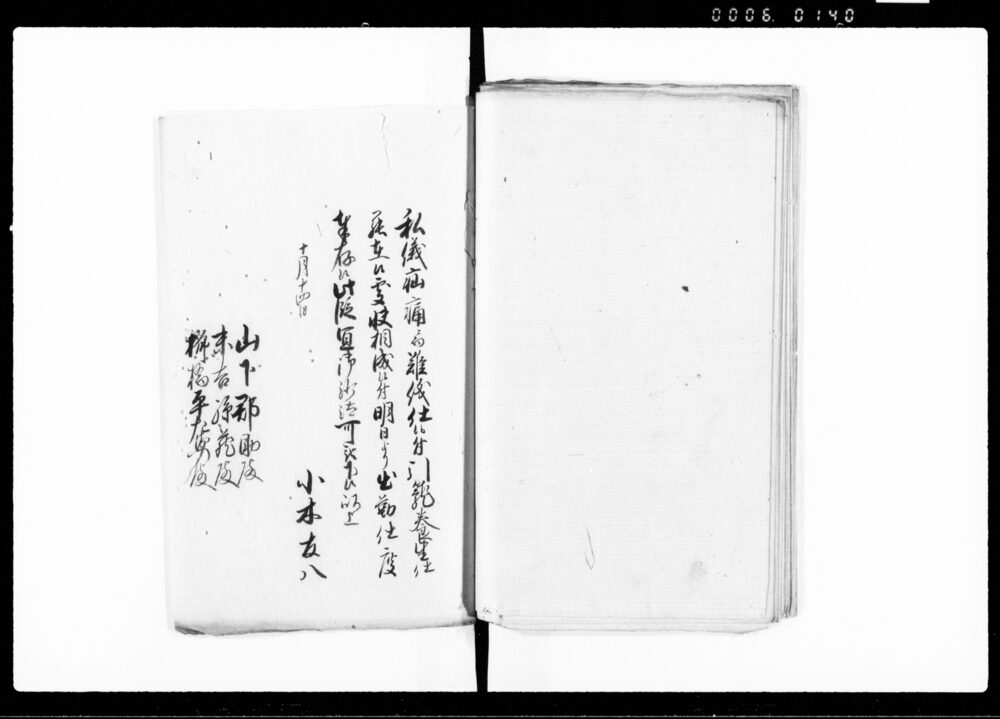 0006. 0140
私儀疝痛ニ而難儀仕候付引籠養生仕
罷在候処快相成候付明日より出勤仕度
奉存候此段宜御沙汰可被下候以上
十月十四日
小木友八
山下郡助殿
末吉孫蔵殿
橋平左衛門殿